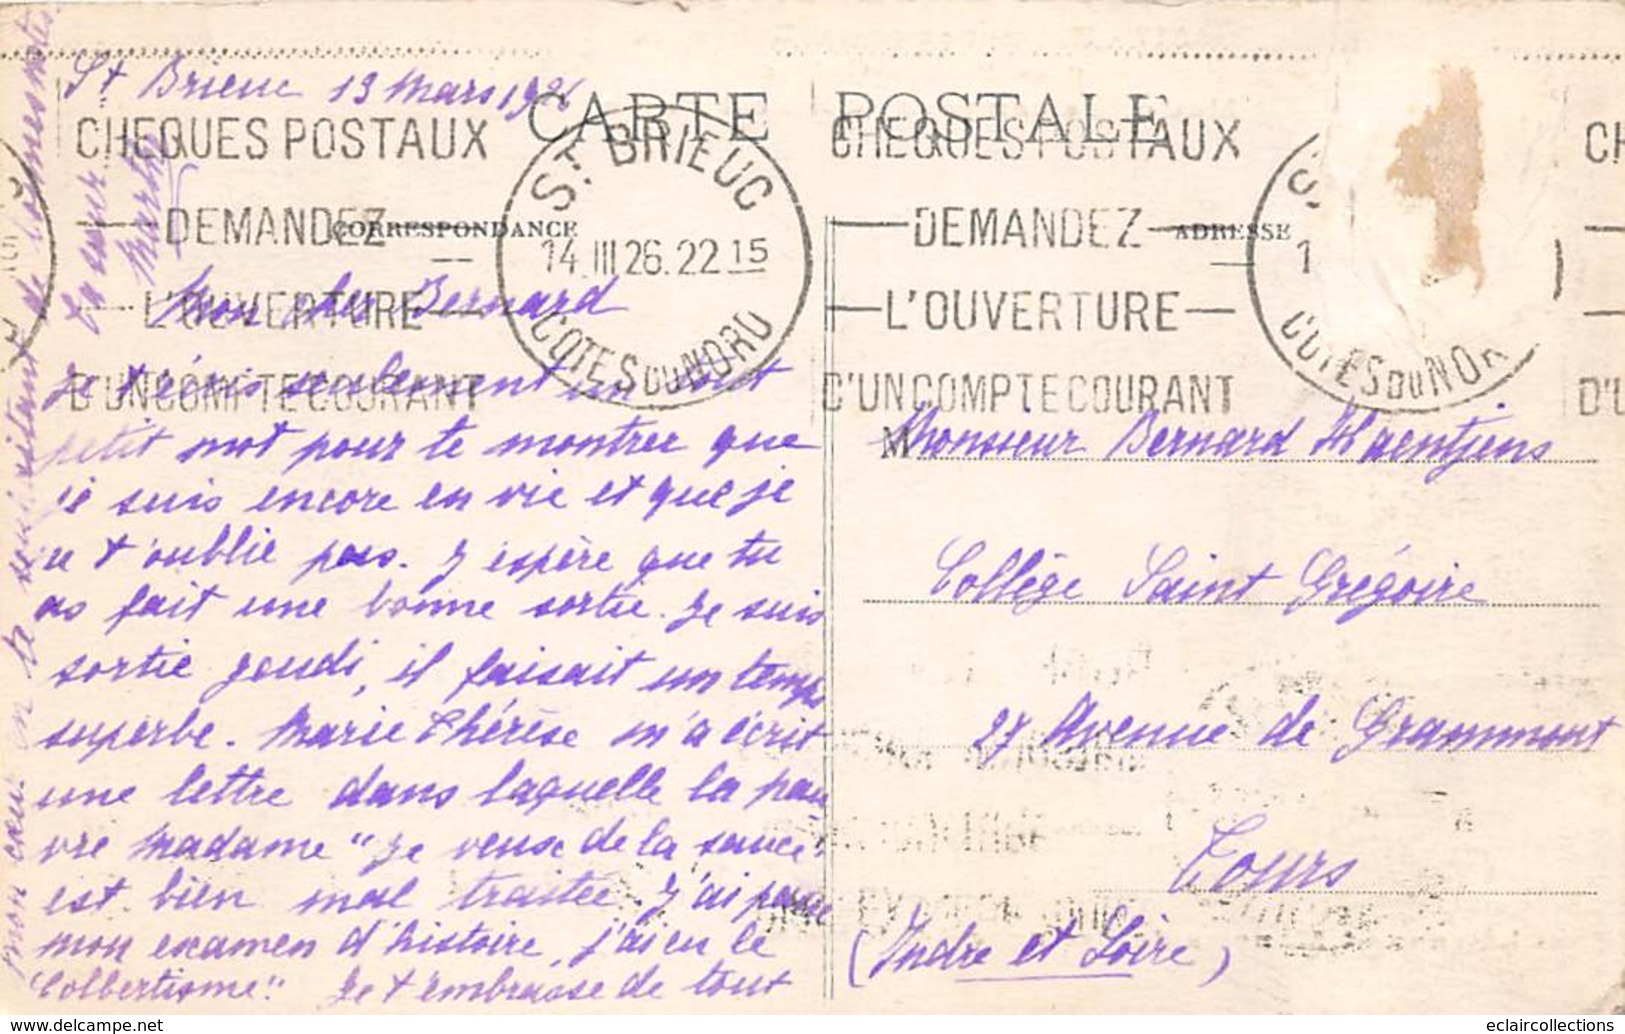 St Brieuc 13 Mars 1926
CARTE POSTALE
CHEQUES POSTAUX
DEMANDEZ
L'OUVERTURE
D'UN COMPTE COURANT
ST. BRIEUC
14 III 26. 22 15
COTES DU NORD
CHEQUES POSTAUX
DEMANDEZ
L'OUVERTURE
D'UN COMPTE COURANT
COTES DU NOR
CORRESPONDANCE
ADRESSE
Mon cher Bernard
Je t'écris seulement un tout
petit mot pour te montrer que
je suis encore en vie et que je
ne t'oublie pas. J'espère que tu
as fait une bonne sortie. Je suis
sortie jeudi, il faisait un temps
superbe. Marie Thérèse m'a écrit
une lettre dans laquelle la pau
vre Madame "Je veuse de la sauce"
est bien mal traitée. J'ai passé
mon examen d'histoire, j'ai eu le
"Colbertisme". Je t'embrasse de tout
mon cœur en te souhaitant de bonnes notes.
Ta sœur
M
Monsieur Bernard Haentjens
Collège Saint Grégoire
27 Avenue de Grammont
Tours
(Indre et Loire)
eclaircollections
www.delcampe.net